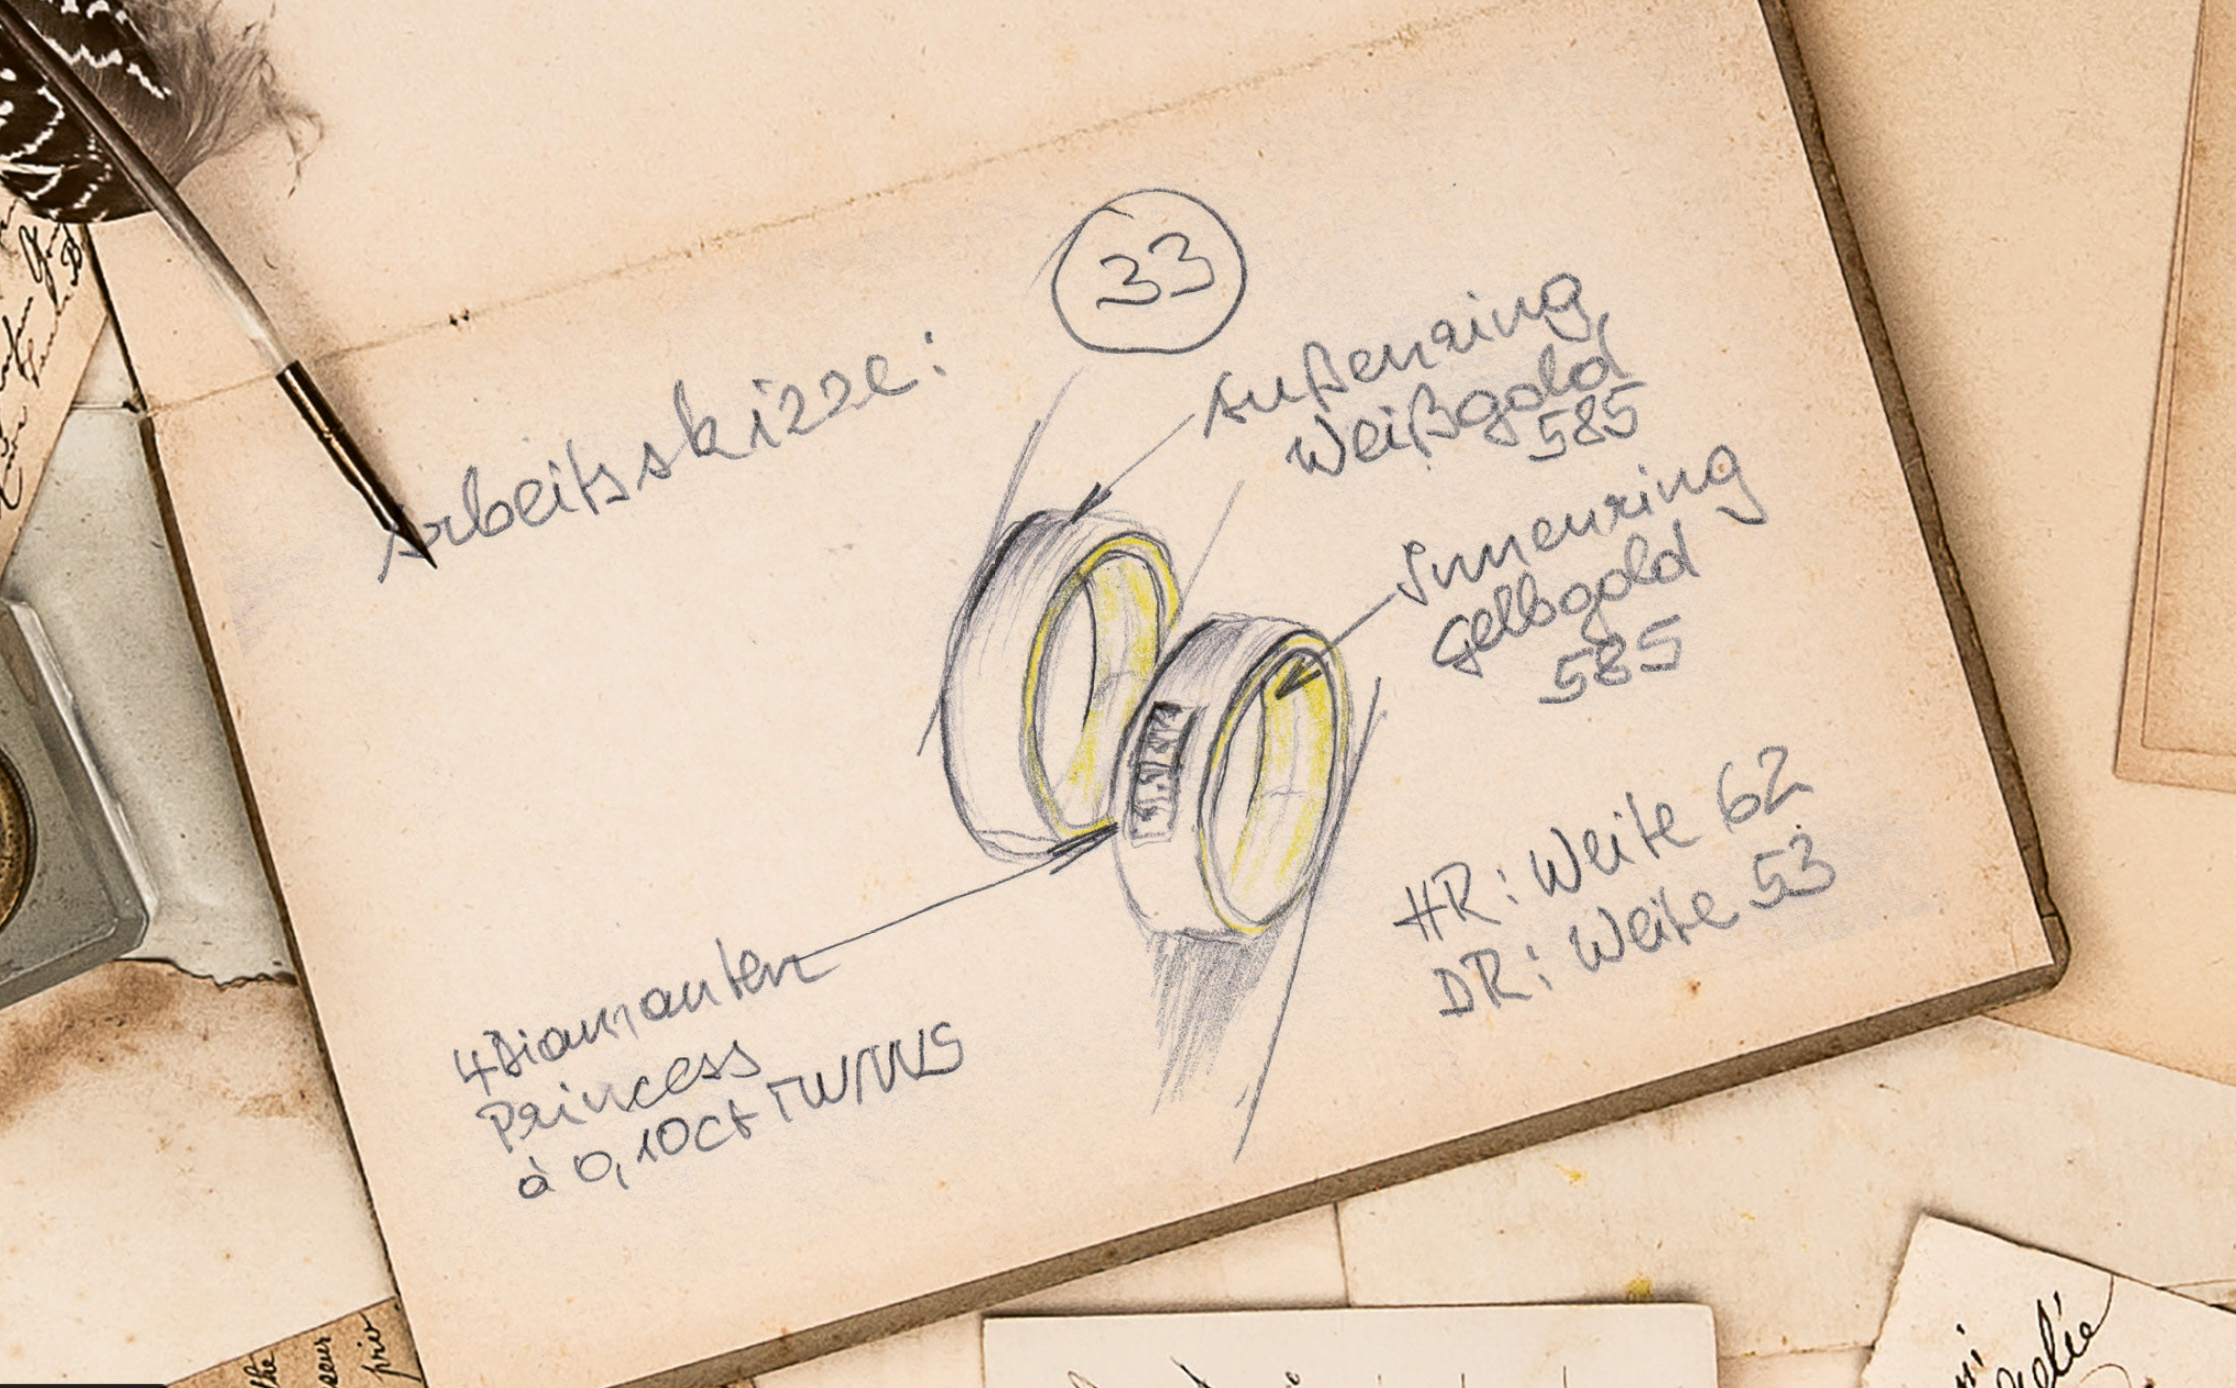 33
Arbeitsskizze:
Außenring
Weißgold
585
Innenring
Gelbgold
585
HR: Weite 62
DR: Weite 53
4 Diamanten
Princess
à 0,10ct TW/VVS